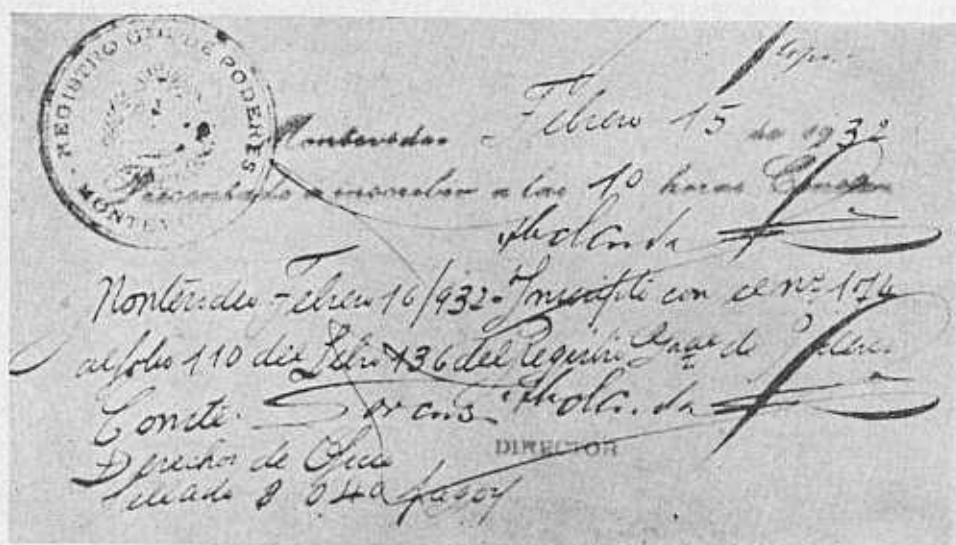 REGISTRO GRAL DE PODERES
MONTEV
Montevideo - Febrero 15 de 1932
Presentado a inscribir a las 10 horas Conste
Montevideo Febrero 16/932 - Inscripto con el nº
al folio 110 del Libro 136 del Registro Gral de Poderes
Conste.
DIRECTOR
Derechos de Ofic
Sellado $ 0.40